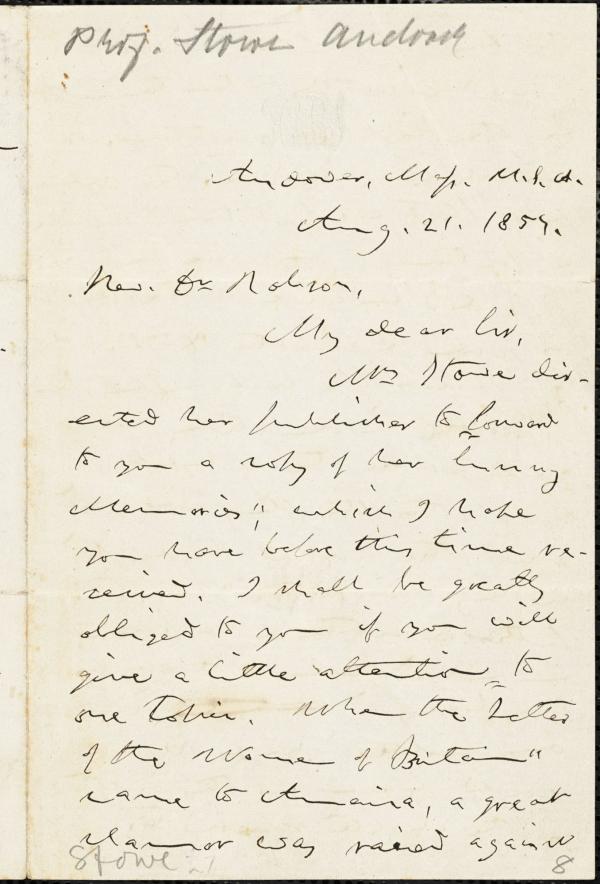 Prof. Stowe Andover
Andover, Mass. U.S.A.
Aug. 21. 1854.
Rev. Dr Robson,
My dear Sir,
Mrs Stowe dir-
ected her publisher to forward
to you a copy of her "Sunny
Memories", which I hope
you have before this time re-
ceived. I shall be greatly
obliged to you if you will
give a little attention to
one topic. When the "Letter
of the Women of Britain"
came to America, a great
clamor was raised against
Stowe
8